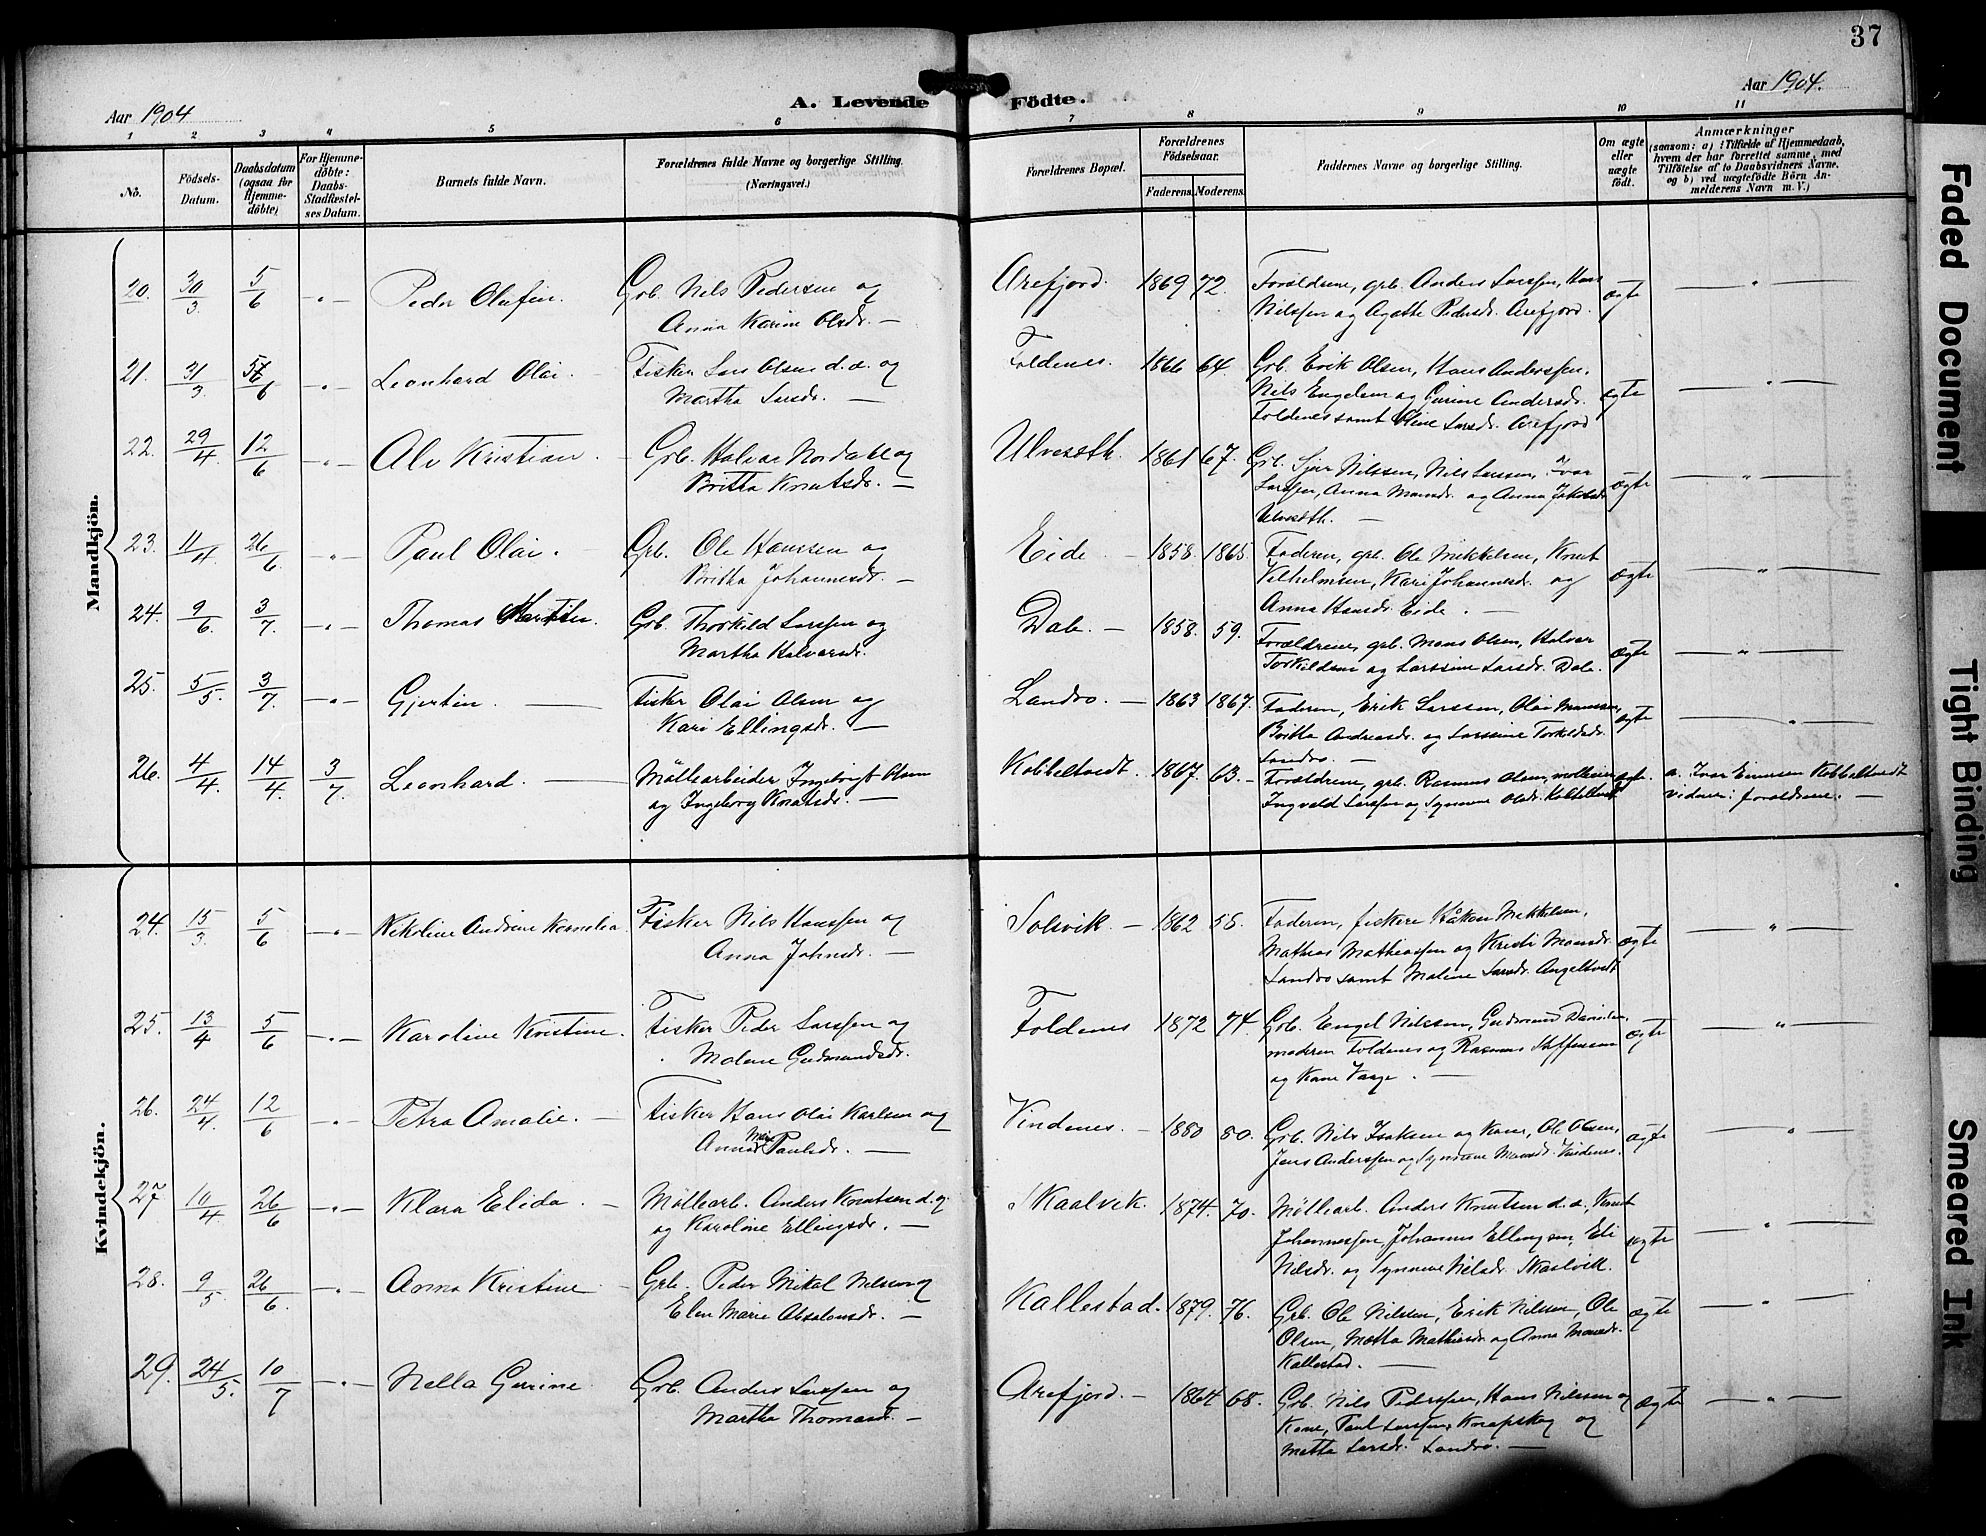 37
Aar 1904
A. Levende Födte.
Aar 1904.
1 2 3 4 5 6 7 8 9 10 11
No.
Födsels-Datum.
Daabsdatum (ogsaa for Hjemmedöbte)
For Hjemmedöbte: Daabs-Stadfæstelses Datum.
Barnets fulde Navn.
Forældrenes fulde Navne og borgerlige Stilling. (Næringsvei.)
Forældrenes Bopæl.
Forældrenes Födselsaar.
Faderens. Moderens.
Faddernes Navne og borgerlige Stilling.
Om ægte eller uægte födt.
Anmærkninger
(saasom: a) i Tilfælde af Hjemmedaab,
hvem der har forrettet samme, med
Tilföielse af to Daabsvidners Navne.
og b) ved uægtefödte Börn An-
melderens Navn m. V.)
Mandkjön.
20. 30/3 5/6 -"- Peder Olufin. Grb. Nils Pedersen og
Anna Karine Olsdr. —
Arefjord. 1869 72. Forældrene, grb. Anders Larssen, Hans
Nilssen og Agathe Pedersdr. Arefjord. ægte — " —
21. 31/3 5/6 -"- Leonhard Olai. Fisker Lars Olsen d.a. og
Martha Larsdr. —
Foldenes. 1866 64. Grb. Erik Olsen, Hans Anderssen,
Nils Engelsen og Gurine Andersdr.
Foldenes samt Oline Larsdr. Arefjord ægte — " —
22. 29/4 12/6 -"- Alv Kristian. Grb. Halvar Nordahl og
Britha Knutsdr. —
Ulvesæth. 1861 67. Grb. Sjur Nilssen, Nils Larssen, Ivar
Larssen, Anna Monsdr. og Anna Jakobsdr
Ulvesæth. — ægte — " —
23. 11/4 26/6 -"- Paul Olai. Grb. Ole Hanssen og
Britha Johannesdr. —
Eide — 1858. 1865. Faderen, grb. Ole Mikkelsen, Knut
Vilhelmsen, Kari Johannesdr. og
Anna Hansdr. Eide. — ægte — " —
24. 9/6 3/7. -"- Thomas Martin. Grb. Thorkild Larssen og
Martha Halvorsdr.
Dale. — 1858. 59. Forældrene, grb. Mons Olsen, Halvar
Torkildsen og Larssine Larsdr. Dale. ægte — " —
25. 5/5. 3/7. -"- Gjertin. — Fisker Olai Olsen og
Kari Ellingsdr. —
Landro — 1863 1867. Faderen, Erik Larssen, Olai Monssen,
Britha Andreasdr. og Larssine Torkildsdr.
Landro. — ægte — " —
26. 4/4. 14/4. 3/7. Leonhard. — Møllearbeider Ingebrigt Olsen
og Ingeborg Knutsdr. —
Kobbeltvedt. 1867. 63. Forældrene, grb. Rasmus Olsen, møllearb.
Ingvald Larssen og Synneve Olsdr. Kobbeltvedt ægte. a. Ivar Einersen Kobbeltvedt
vidner: forældrene. —
Kvindekjön.
24. 15/3. 5/6 -"- Nikoline Andrine Kornelia. Fisker Nils Hanssen og
Anna Johnsdr. —
Solsvik. — 1862 58. Faderen, fiskere Håkon Mikkelsen,
Mathias Mathiassen og Kristi Monsdr.
Landro samt Maline Larsdr. Angeltvedt ægte — " —
25. 13/4 5/6 -"- Karoline Kristine. Fisker Peder Larssen og
Malene Gudmundsdr.
Foldenes 1872 74. Grb. Engel Nilssen, Gudmund Davidsen,
moderen Foldenes og Rasmus Steffensen
og Kone Vaage. — ægte — " —
26. 24/4. 12/6 -"- Petra Amalie. — Fisker Hans Olai Karlsen og
Anna Marie Paulsdr. —
Vindenes. — 1880 80. Grb. Nils Isaksen og Kone, Ole Olsen,
Jens Anderssen og Synneve Monsdr. Vindenes. ægte — " —
27 10/4 26/6 -"- Klara Elida. — Møllearb. Anders Knutsen d.y.
og Karoline Ellingsdr. —
Skaalvik. 1874. 70. Møllearb. Anders Knutsen d.a., Knut
Johannessen, Johannes Ellingsen, Eli
Nilsdr. og Synneve Nilsdr. Skaalvik. ægte — " —
28. 9/5 26/6. -"- Anna Kristine — Grb. Peder Mikal Nilssen og
Elen Marie Absalonsdr. —
Kallestad. 1879. 76. Grb. Ole Nilssen, Erik Nilssen, Ole
Olsen, Metta Mathiasdr. og Anna Monsdr.
Kallestad. — ægte — " —
29. 24/5. 10/7 -"- Nella Gurine Grb. Anders Larssen og
Martha Thomasdr. —
Arefjord. — 1864 68. Grb. Nils Pederssen, Hans Nilssen og
Kone, Paul Larssen, Knapskog og
Metta Larsdr. Landro. — ægte — " —
Faded Document
Tight Binding
Smeared Ink